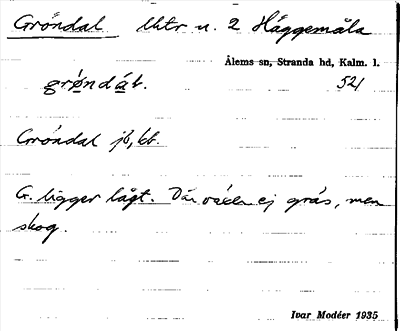 Gröndal lhtr u. 2 Häggemåla
Ålems sn, Stranda hd, Kalm. l.
grǿndat. 521
Gröndal jb, kb.
G. ligger lågt. Där växer ej gräs, men
skog.
Ivar Modéer 1935